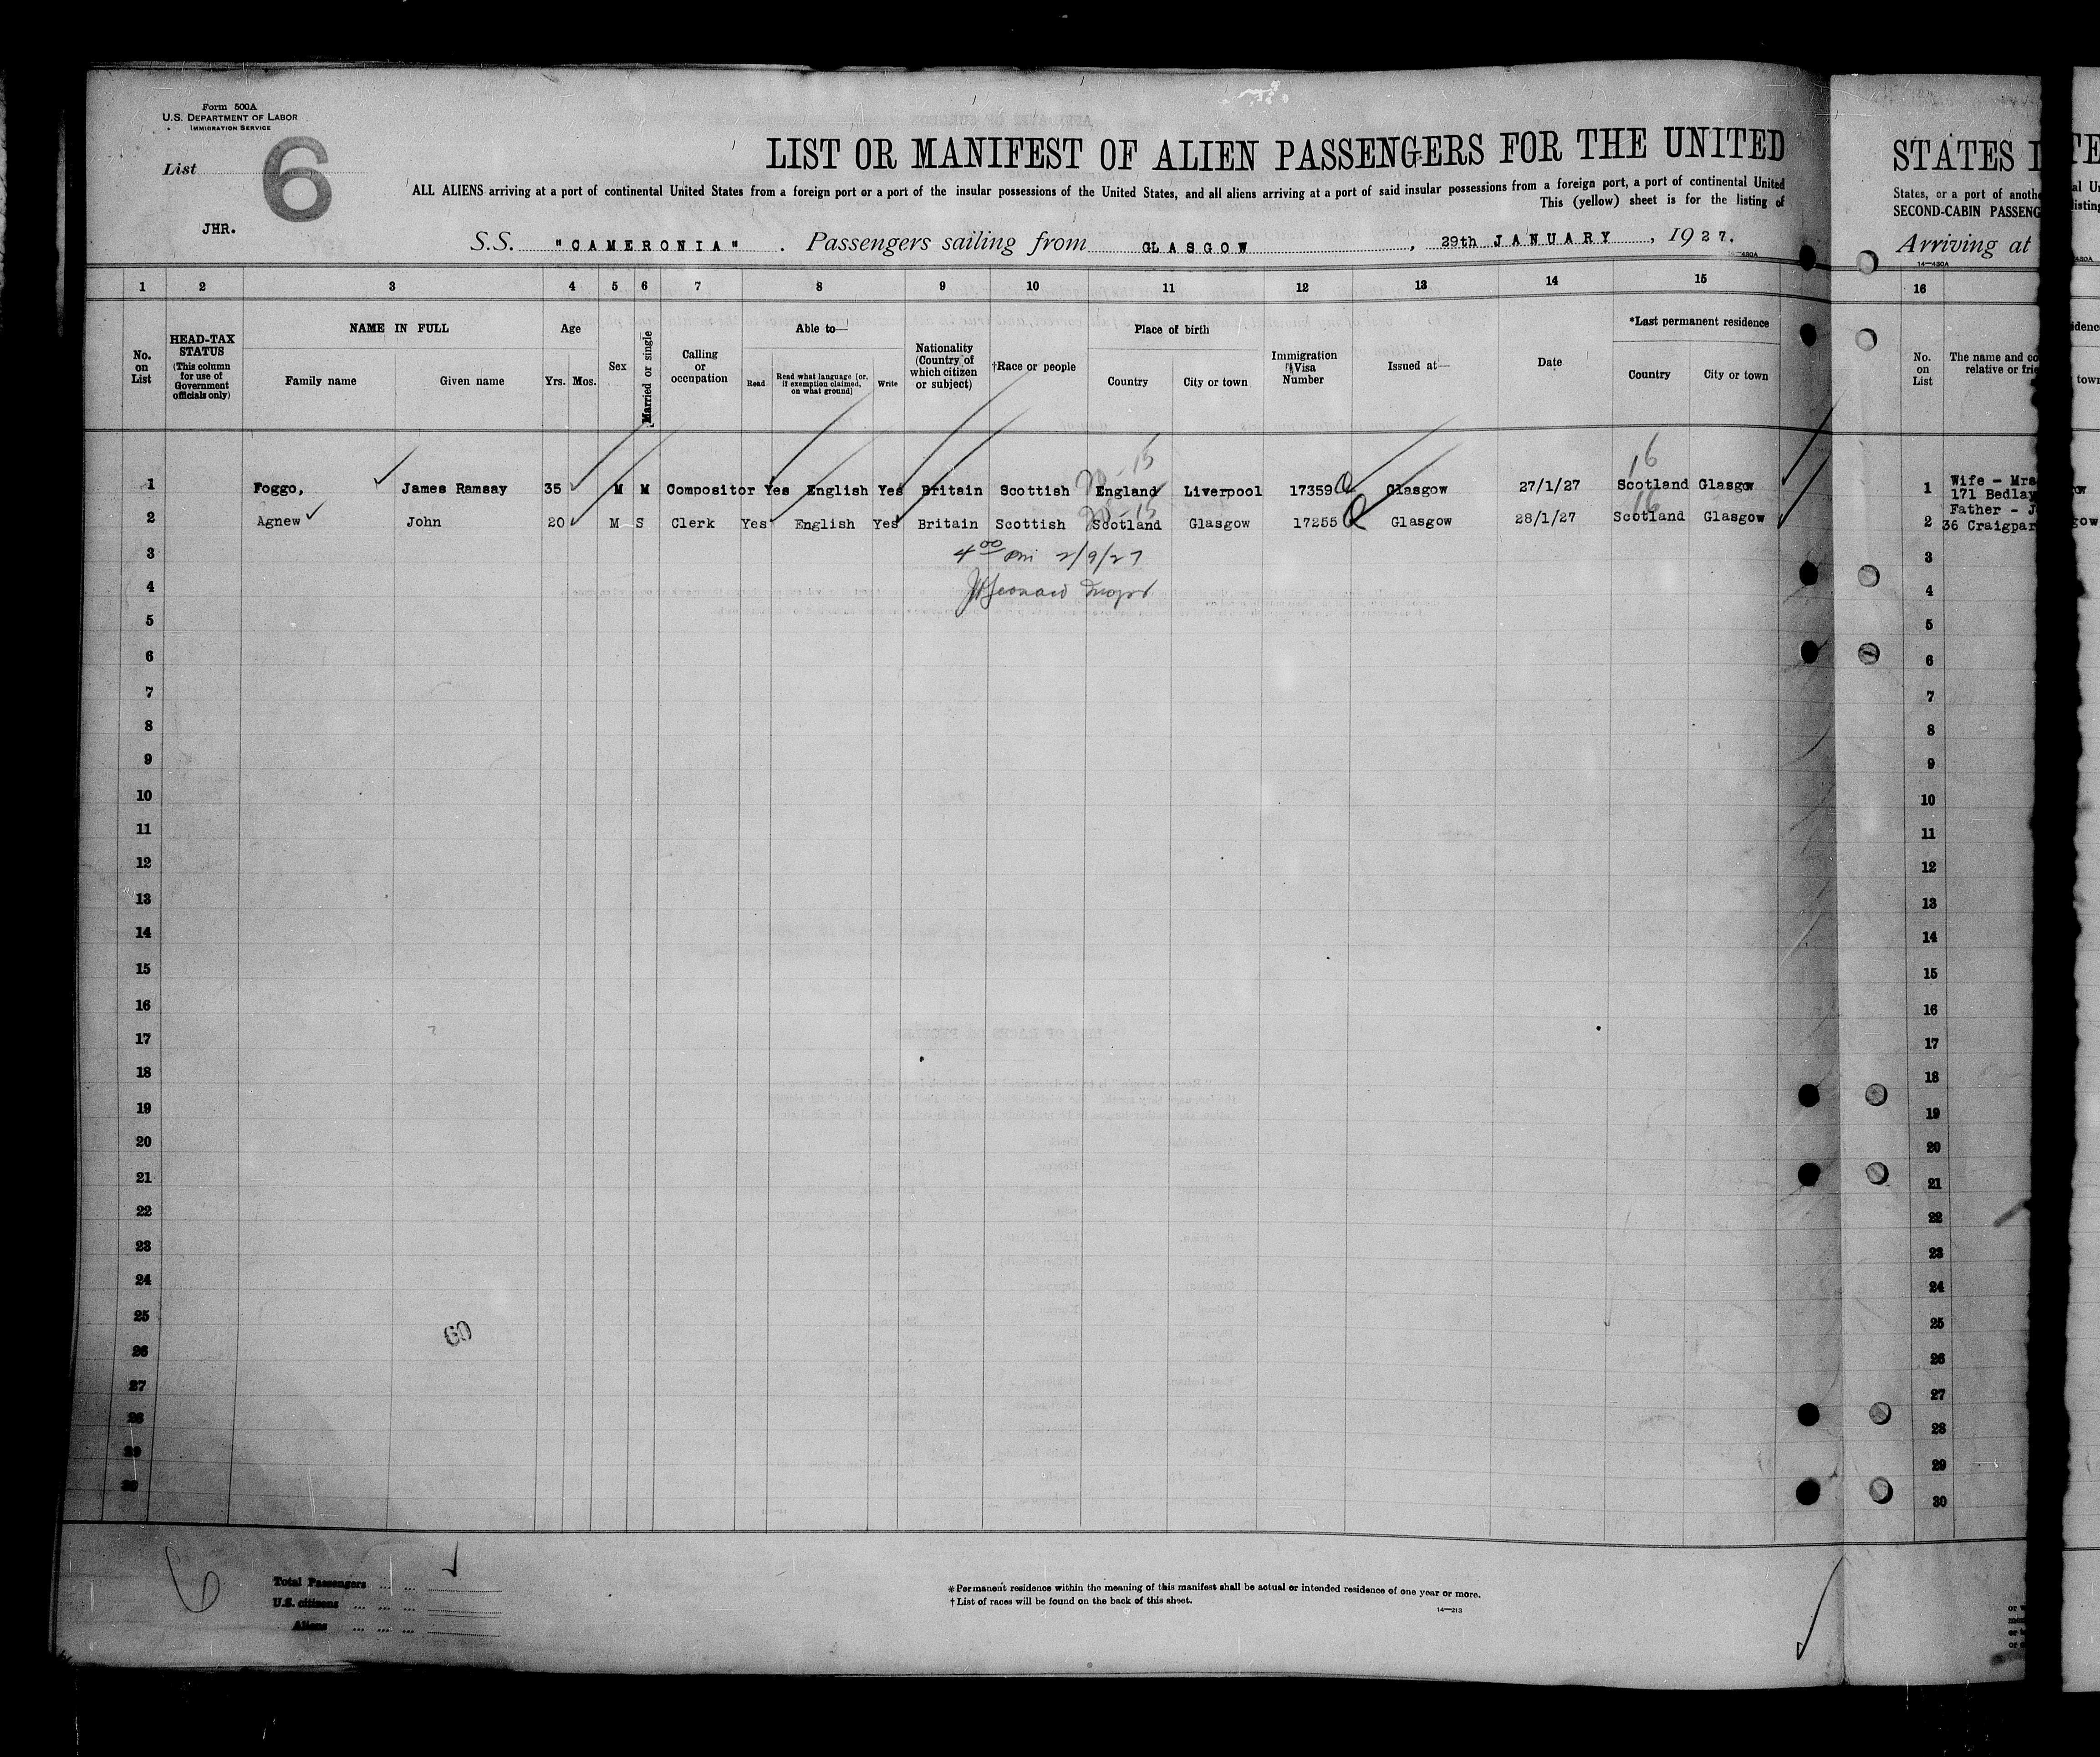 Form 500A
U.S. DEPARTMENT OF LABOR
IMMIGRATION SERVICE
List 6
JHR.
LIST OR MANIFEST OF ALIEN PASSENGERS FOR THE UNITED
ALL ALIENS arriving at a port of continental United States from a foreign port or a port of the insular possessions of the United States, and all aliens arriving at a port of said insular possessions from a foreign port, a port of continental United
This (yellow) sheet is for the listing of
S.S. "CAMERONIA". Passengers sailing from GLASGOW, 29th JANUARY, 1927.
14—480A
1 2 3 4 5 6 7 8 9 10 11 12 13 14 15
No. on List
HEAD-TAX STATUS (This column for use of Government officials only)
NAME IN FULL
Family name Given name
Age
Yrs. Mos.
Sex
Married or single
Calling or occupation
Able to—
Read
Read what language [or, if exemption claimed, on what ground]
Write
Nationality (Country of which citizen or subject)
†Race or people
Place of birth
Country City or town
Immigration Visa Number
Issued at—
Date
*Last permanent residence
Country City or town
20-15
16
1 Foggo, James Ramsay 35 M M Compositor Yes English Yes Britain Scottish England Liverpool 17359 Glasgow 27/1/27 Scotland Glasgow
20-15
16
2 Agnew John 20 M S Clerk Yes English Yes Britain Scottish Scotland Glasgow 17255 Glasgow 28/1/27 Scotland Glasgow
3
4 00 2/9/27
4
Leonard
5
6
7
8
9
10
11
12
13
14
15
16
17
18
19
20
21
22
23
24
25
60
26
27
28
29
30
6
Total Passengers ... ...
U.S. citizens ... ... ...
Aliens ... ... ...
*Permanent residence within the meaning of this manifest shall be actual or intended residence of one year or more.
†List of races will be found on the back of this sheet.
14—213
STATES I
States, or a port of anothe
SECOND-CABIN PASSENG
Arriving at
14—480A
16
No. on List
The name and co
relative or frie
1 Wife - Mrs
171 Bedlay
2 Father - J
36 Craigpar
3
4
5
6
7
8
9
10
11
12
13
14
15
16
17
18
19
20
21
22
23
24
25
26
27
28
29
30